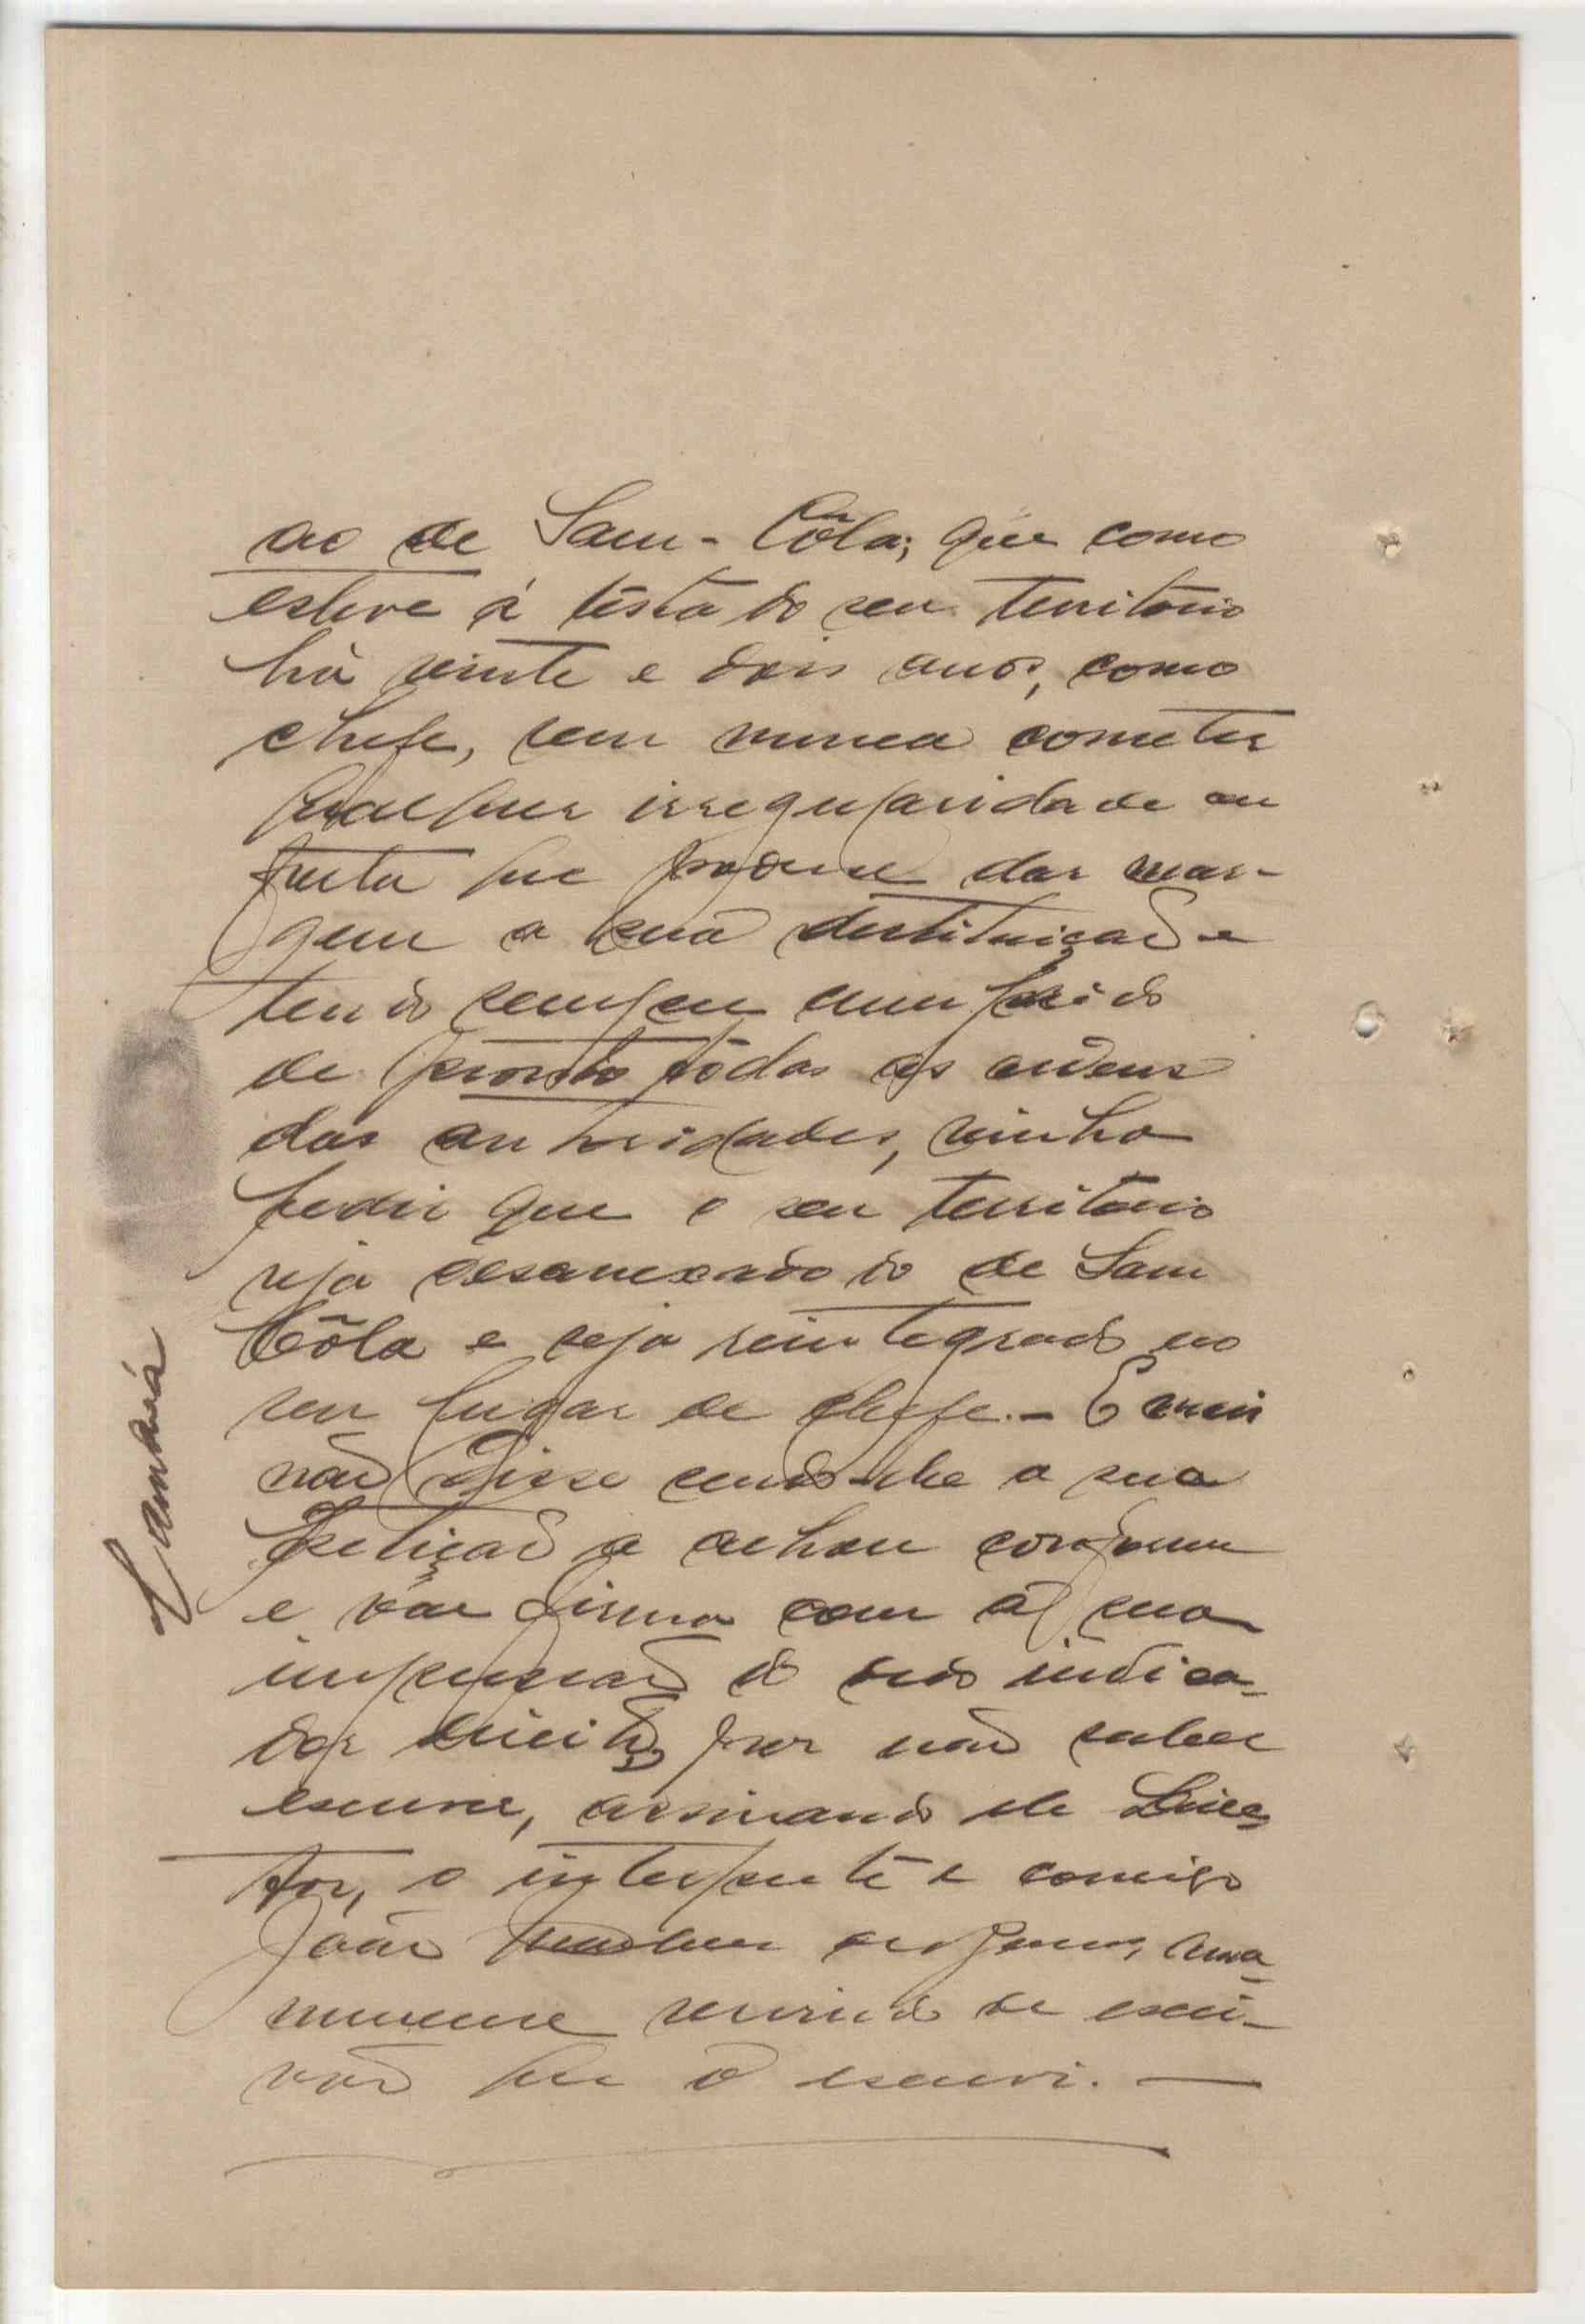 ao de Sam-Côla; que como
esteve á tésta do seu território
há vinte e dois anos, como
chefe, sem nunca cometer
qualquer irregularidade ou
falta que podesse dar mar-
gem a sua destituiçaõ e
tendo sempre cumprido
de pronto tôdas as ordens
das autoridades, vinha
pedir que o seu território
seja desanexado do de Sam
Côla e seja reintegrado no
seu lugar de chefe. - E mais
naõ disse lendo-lhe a sua
petiçaõ a achou conforme
e vae firma com a sua
impressaõ do dedo indica-
dor direito, por naõ saber
escrever, assinando ele Direc
tor, o interprete e comigo
João ama-
nuense servindo de escri-
vaõ que o escrevi.
Samba